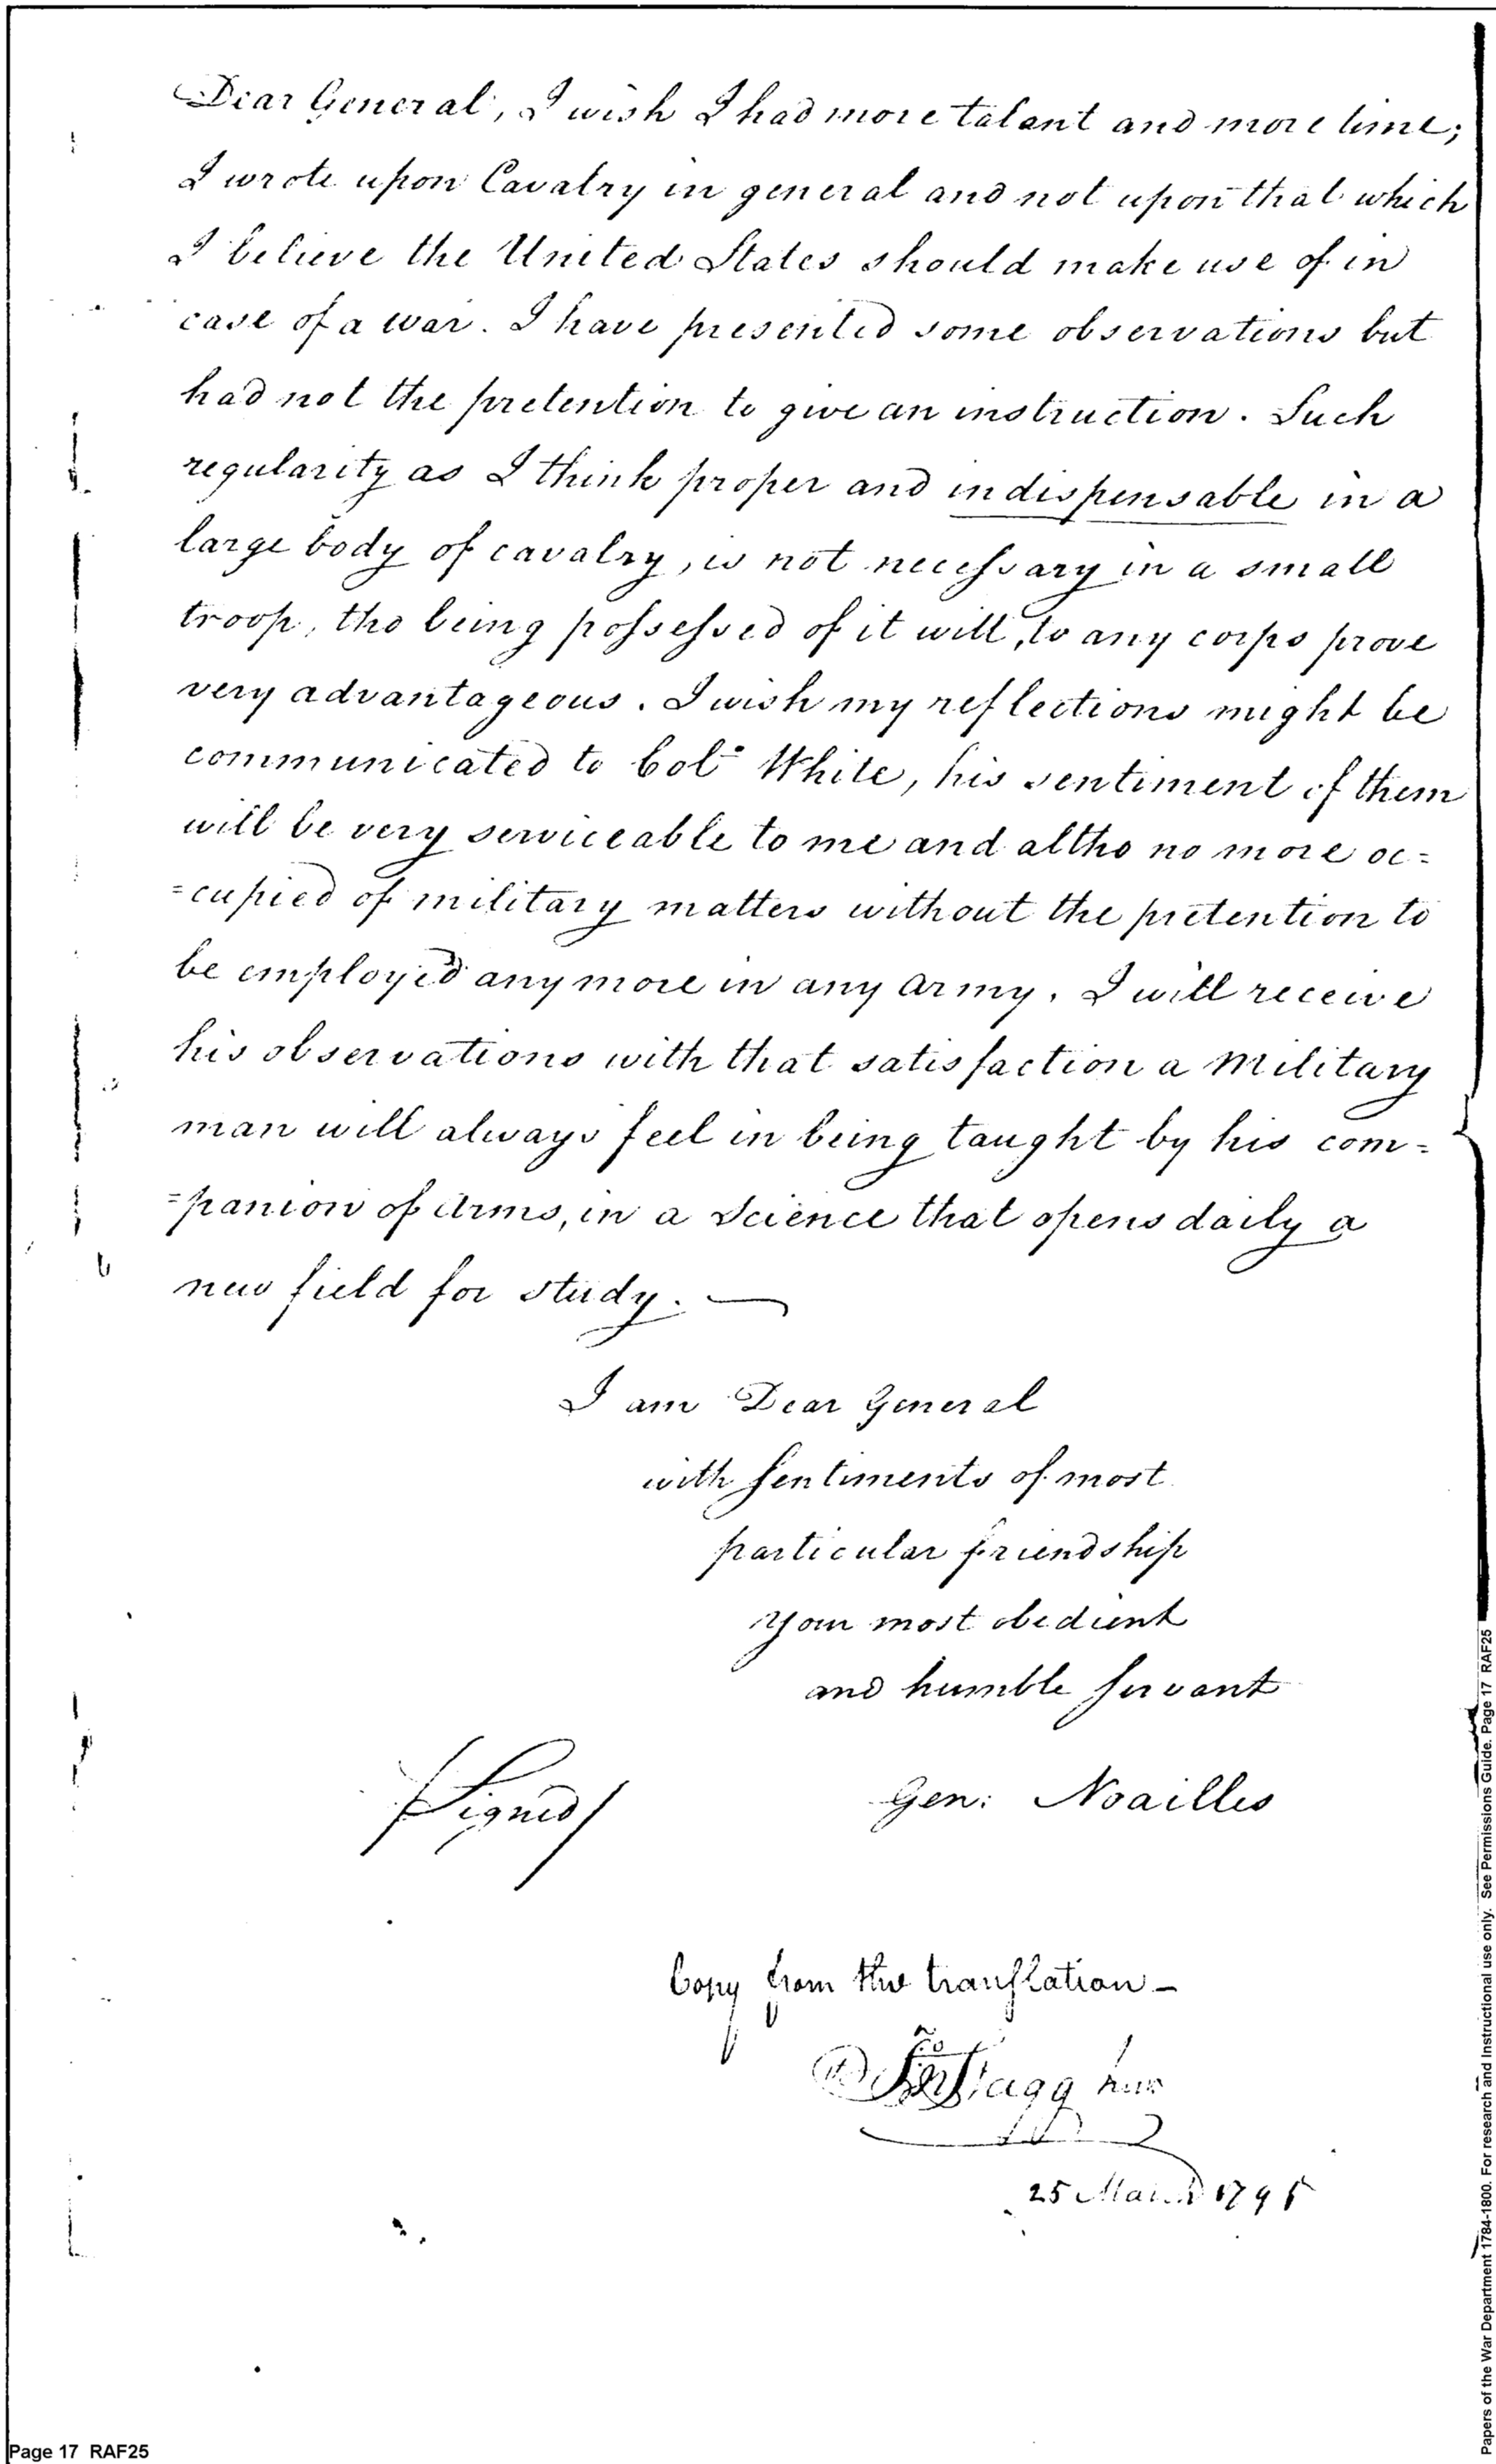 Dear General, I wish I had more talant and more time;
I wrote upon Cavalry in general and not upon that which
I believe the United States should make use of in
case of a war. I have presented some observations but
had not the pretention to give an instruction. Such
regularity as I think proper and indispensable in a
large body of cavalry, is not necessary in a small
troop, tho being possessed of it will, to any corps prove
very advantageous. I wish my reflections might be
communicated to Col. White, his sentiment of them
will be very serviceable to me and altho no more oc=
=cupied of military matters without the pretention to
be employed any more in any army. I will receive
his observations with that satisfaction a Military
man will always feel in being taught by his com=
=panion of Arms, in a Science that opens daily a
new field for study. —
I am Dear General
with Sentiments of most
particular friendship
your most obedient
and humble Servant
/Signed/ Gen: Noailles
Copy from the translation -
Stagg
25 March 1795
Page 17 RAF25
Papers of the War Department 1784-1800. For research and Instructional use only. See Permissions Guide. Page 17 RAF25